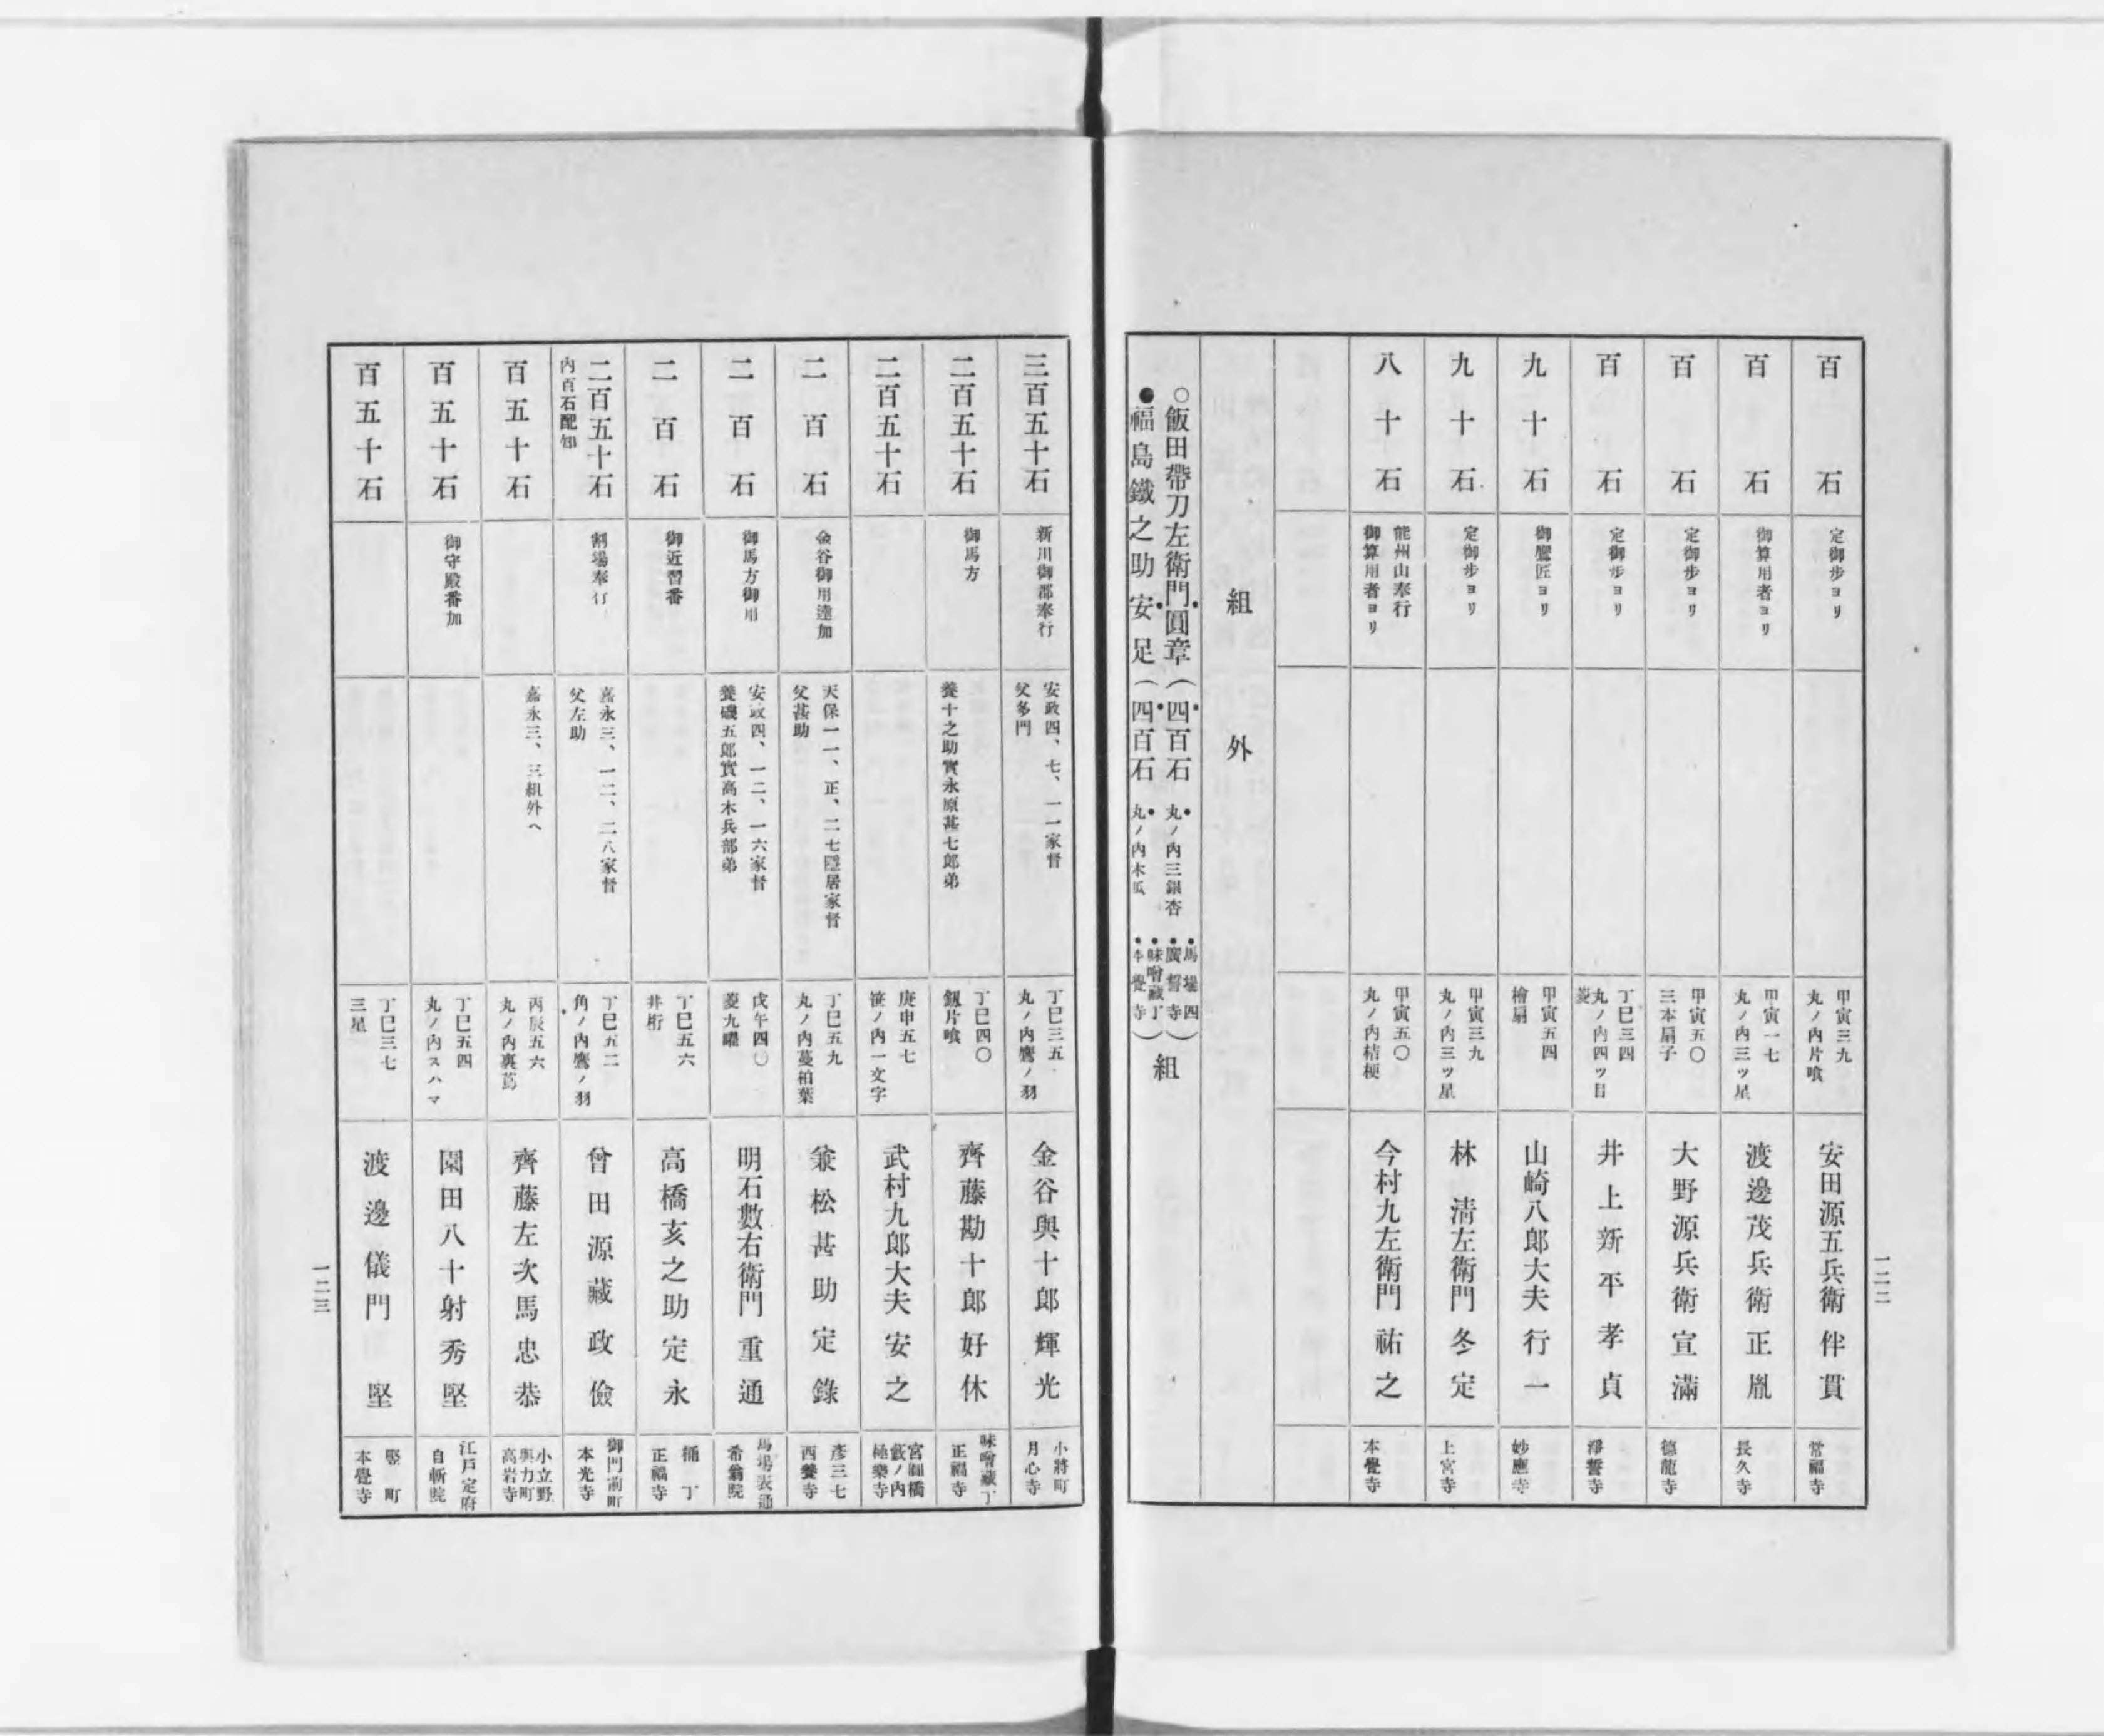 百石
定御步ヨリ
甲寅三九
丸ノ內片喰
安田源五兵衛伴貫
常福寺
百石
御算用者ヨリ
甲寅一七
丸ノ內三ツ星
渡邊茂兵衛正胤
長久寺
百石
定御步ヨリ
甲寅五〇
三本扇子
大野源兵衛宣滿
德龍寺
百石
定御步ヨリ
丁巳三四
丸ノ內四ツ目
菱
井上新平孝貞
淨誓寺
九十石
御鷹匠ヨリ
甲寅五四
檜扇
山崎八郎大夫行一
妙應寺
九十石
定御步ヨリ
甲寅三九
丸ノ內三ツ星
林淸左衛門冬定
上宮寺
八十石
能州山奉行
御算用者ヨリ
甲寅五〇
丸ノ內桔梗
今村九左衛門祐之
本覺寺
組外
○飯田帶刀左衛門圓章(四百石 丸ノ內三銀杏 馬場四 廣誓寺)
●福島鐵之助安足(四百石 丸ノ內木瓜 味噌藏丁 本覺寺)
組
一二二
三百五十石
新川御郡奉行
安政四、七、一一家督
父多門
丁巳三五
丸ノ內鷹ノ羽
金谷與十郎輝光
小將町
月心寺
二百五十石
御馬方
養十之助實永原甚七郎弟
丁巳四〇
劔片喰
齊藤勘十郎好休
味噌藏丁
正福寺
二百五十石
庚申五七
笹ノ內一文字
武村九郎大夫安之
宮圓橋
藪ノ內
極樂寺
二百石
金谷御用達加
天保一一、正、二七隱居家督
父甚助
丁巳五九
丸ノ內蔓柏葉
兼松甚助定錄
彥三七
西養寺
二百石
御馬方御用
安政四、一二、一六家督
養磯五郎實高木兵部弟
戊午四〇
菱九曜
明石數右衛門重通
馬場表通
希翁院
二百石
御近習番
丁巳五六
井桁
高橋亥之助定永
桶丁
正福寺
二百五十石
內百石配知
割場奉行
嘉永三、一二、二八家督
父左助
丁巳五二
角ノ內鷹ノ羽
曾田源藏政儉
御門前町
本光寺
百五十石
嘉永三、三組外へ
丙辰五六
丸ノ內裏蔦
齊藤左次馬忠恭
小立野
與力町
高岩寺
百五十石
御守殿番加
丁巳五四
丸ノ內スハマ
園田八十射秀堅
江戶定府
自斬院
百五十石
丁巳三七
三星
渡邊儀門堅
竪町
本覺寺
一二三